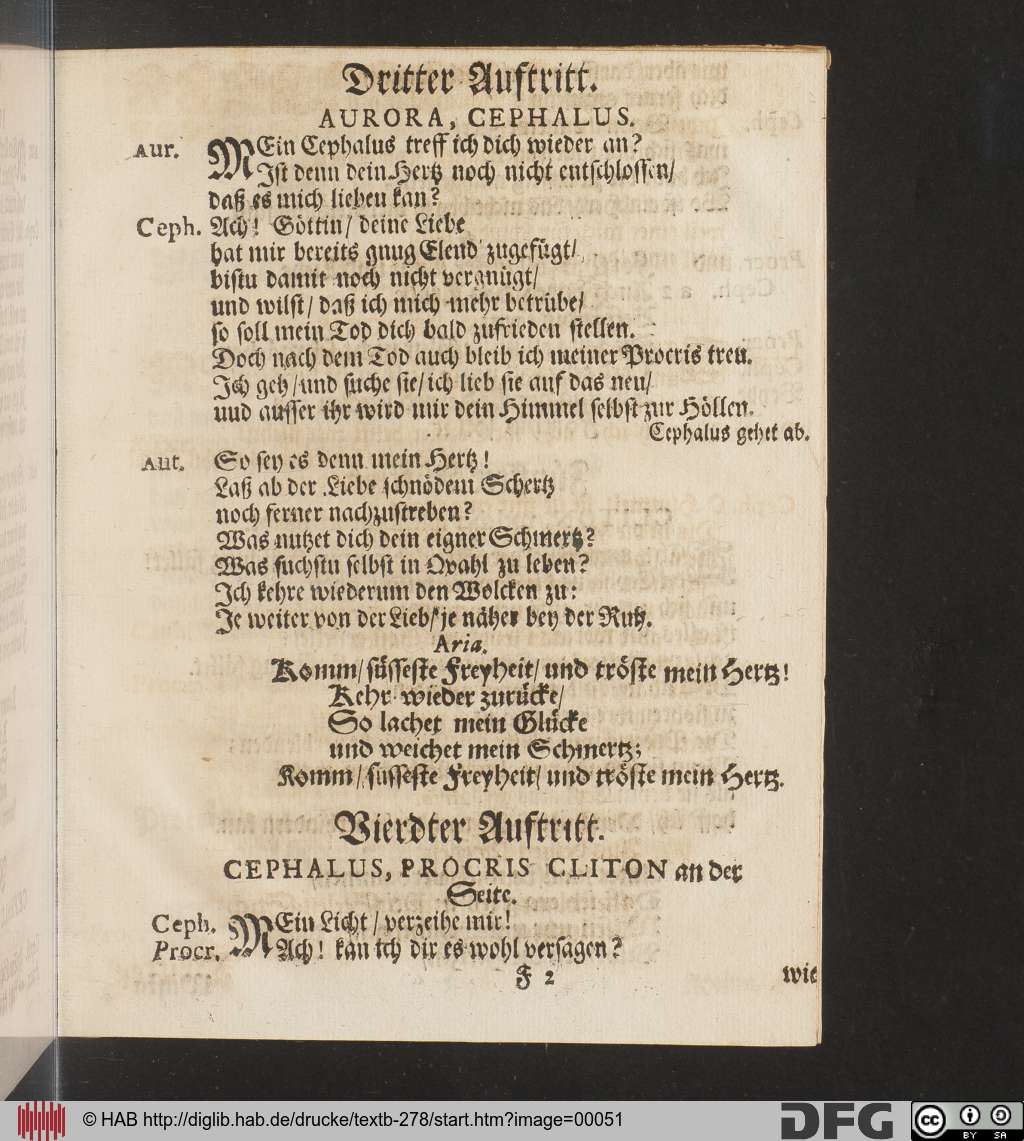 Dritter Auftritt.
AURORA, CEPHALUS.
Aur. MEin Cephalus treff ich dich wieder an?
Ist denn dein Hertz noch nicht entschlossen/
daß es mich lieben kan?
Ceph. Ach! Göttin/ deine Liebe
hat mir bereits gnug Elend zugefügt/
bistu damit noch nicht vergnügt/
und wilst/ daß ich mich mehr betrübe/
so soll mein Tod dich bald zufrieden stellen.
Doch nach dem Tod auch bleib ich meiner Procris treu.
Ich geh/ und suche sie/ ich lieb sie auf das neu/
und ausser ihr wird mir dein Himmel selbst zur Höllen.
Cephalus gehet ab.
Aut. So sey es denn mein Hertz!
Laß ab der Liebe schnödem Schertz
noch ferner nachzustreben?
Was nutzet dich dein eigner Schmertz?
Was suchstu selbst in Qvahl zu leben?
Ich kehre wiederum den Wolcken zu:
Je weiter von der Lieb/ je näher bey der Ruh.
Aria.
Komm/ süsseste Freyheit/ und tröste mein Hertz!
Kehr wieder zurücke/
So lachet mein Glücke
und weichet mein Schmertz;
Komm/ süsseste Freyheit/ und tröste mein Hertz.
Vierdter Auftritt.
CEPHALUS, PROCRIS CLITON an der
Seite.
Ceph. MEin Licht/ verzeihe mir!
Procr. Ach! kan ich dir es wohl versagen?
F 2 wie
© HAB http://diglib.hab.de/drucke/textb-278/start.htm?image=00051
DFG
cc BY SA